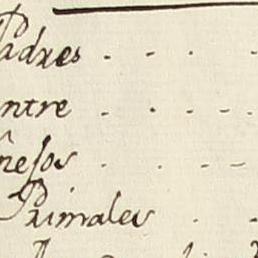 Padres - - -
entre - - - -
ñesos - - - -
Primales - -